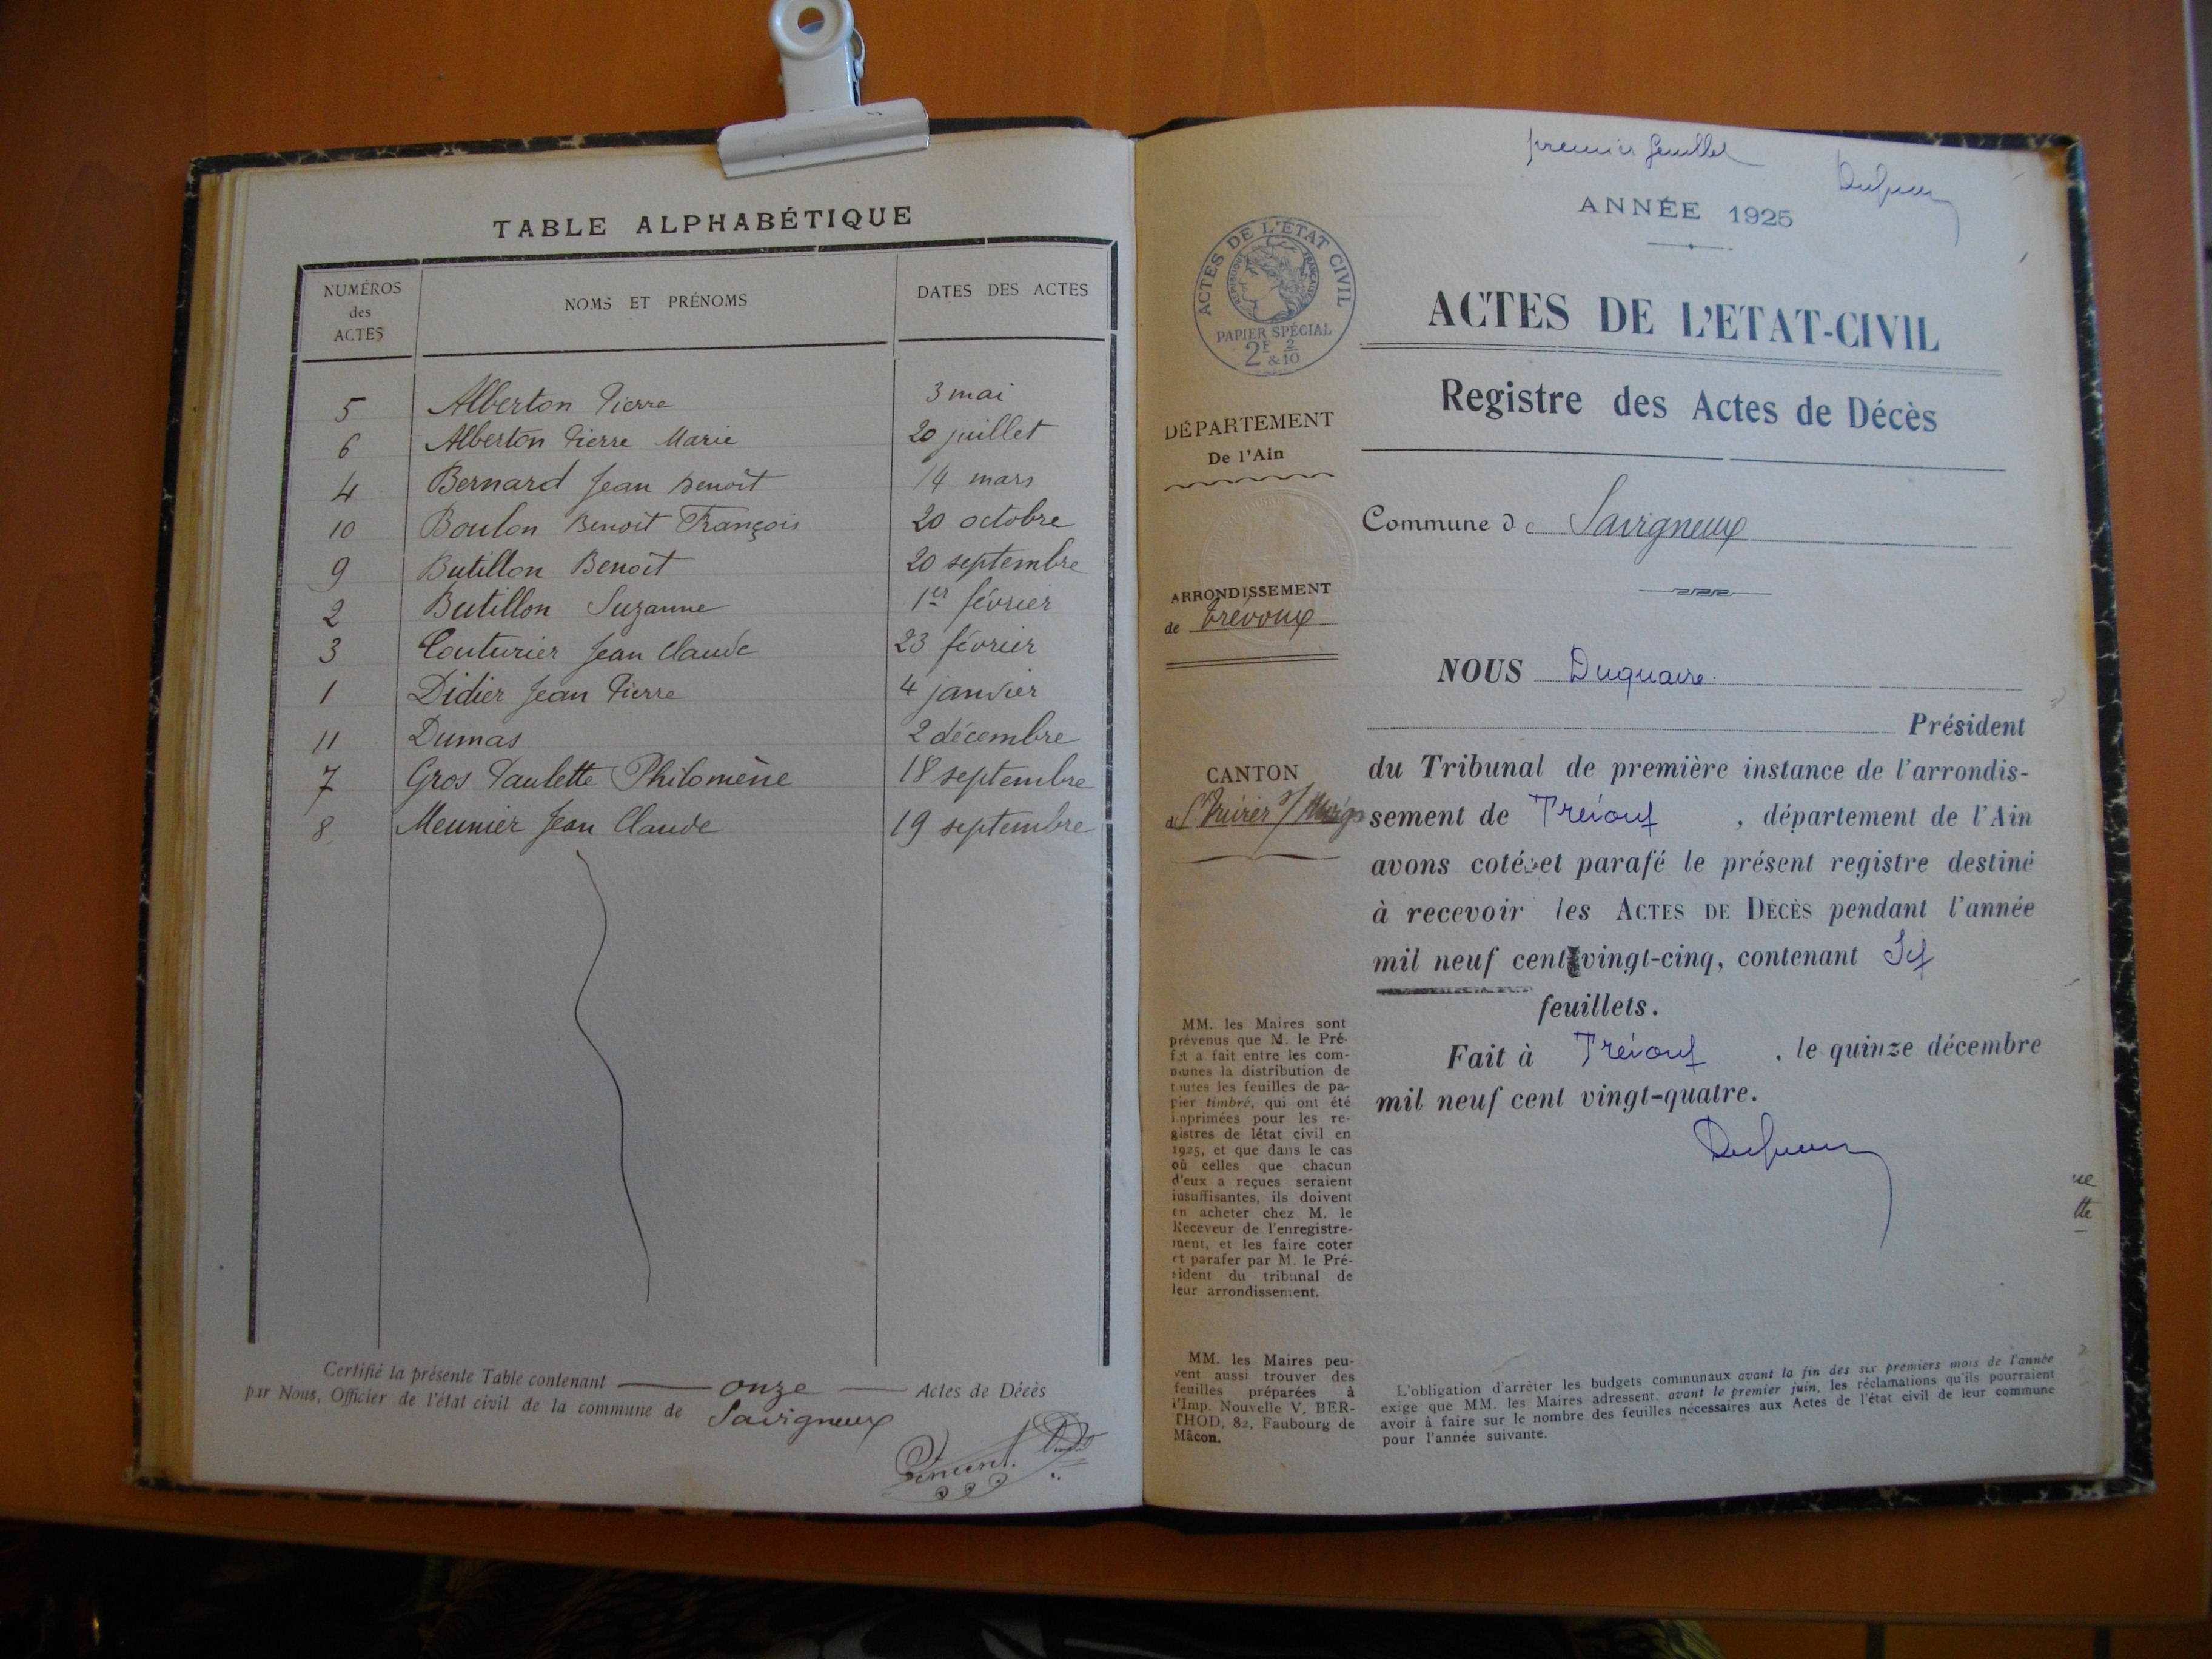 TABLE ALPHABÉTIQUE
NUMÉROS des ACTES
NOMS ET PRÉNOMS
DATES DES ACTES
5 Alberton Pierre 3 mai
6 Alberton Pierre Marie 20 juillet
4 Bernard Jean Benoît 14 mars
10 Boulon Benoit François 20 octobre
9 Butillon Benoît 20 septembre
2 Butillon Suzanne 1er février
3 Couturier Jean Claude 23 février
1 Didier Jean Pierre 4 janvier
11 Dumas 2 décembre
7 Gros Paulette Philomène 18 septembre
8 Meunier Jean Claude 19 septembre
Certifié la présente Table contenant onze Actes de Décès
par Nous, Officier de l'état civil de la commune de Savigneux
premier feuillet
ANNÉE 1925
ACTES DE L'ÉTAT CIVIL
RÉPUBLIQUE FRANÇAISE
PAPIER SPÉCIAL
2F & 2/10
ACTES DE L'ETAT-CIVIL
Registre des Actes de Décès
DÉPARTEMENT
De l'Ain
Commune de Savigneux
ARRONDISSEMENT
de Trévoux
CANTON
NOUS Duquaire
Président
du Tribunal de première instance de l'arrondis-
sement de Trévoux, département de l'Ain
avons coté et parafé le présent registre destiné
à recevoir les ACTES DE DÉCÈS pendant l'année
mil neuf cent vingt-cinq, contenant
feuillets.
Fait à Trévoux, le quinze décembre
mil neuf cent vingt-quatre.
MM. les Maires sont
prévenus que M. le Pré-
fet a fait entre les com-
munes la distribution de
toutes les feuilles de pa-
pier timbré, qui ont été
imprimées pour les re-
gistres de létat civil en
1925, et que dans le cas
où celles que chacun
d'eux a reçues seraient
insuffisantes, ils doivent
en acheter chez M. le
Receveur de l'enregistre-
ment, et les faire coter
et parafer par M. le Pré-
sident du tribunal de
leur arrondissement.
MM. les Maires peu-
vent aussi trouver des
feuilles préparées à
l'Imp. Nouvelle V. BER-
THOD, 82, Faubourg de
Mâcon.
L'obligation d'arrêter les budgets communaux avant la fin des six premiers mois de l'année
exige que MM. les Maires adressent, avant le premier juin, les réclamations qu'ils pourraient
avoir à faire sur le nombre des feuilles nécessaires aux Actes de l'état civil de leur commune
pour l'année suivante.